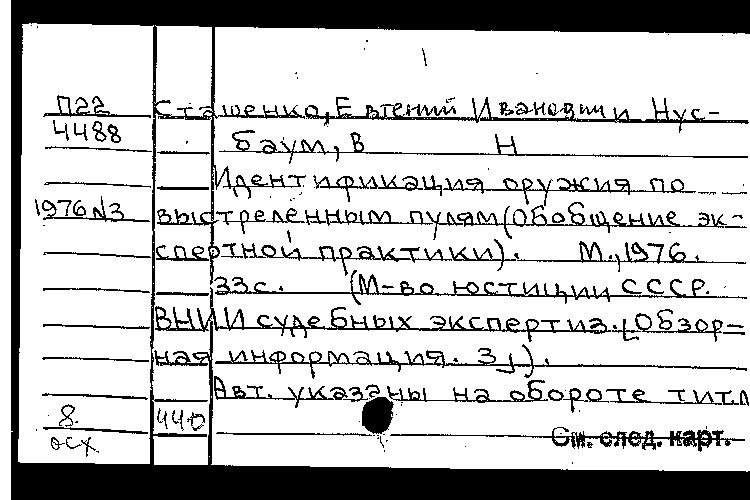 П22 Сташенко, Евгений Иванович и Нус-
4488 баум, В Н
Идентификация оружия по
1976 N3 выстреленным пулям (Обобщение эк-
спертной практики). М., 1976.
33с. (М-во юстиции СССР.
ВНИИ судебных экспертиз. [Обзор-
ная информация. 3]).
Авт. указаны на обороте тит.л
8 440
осх См. след. карт.